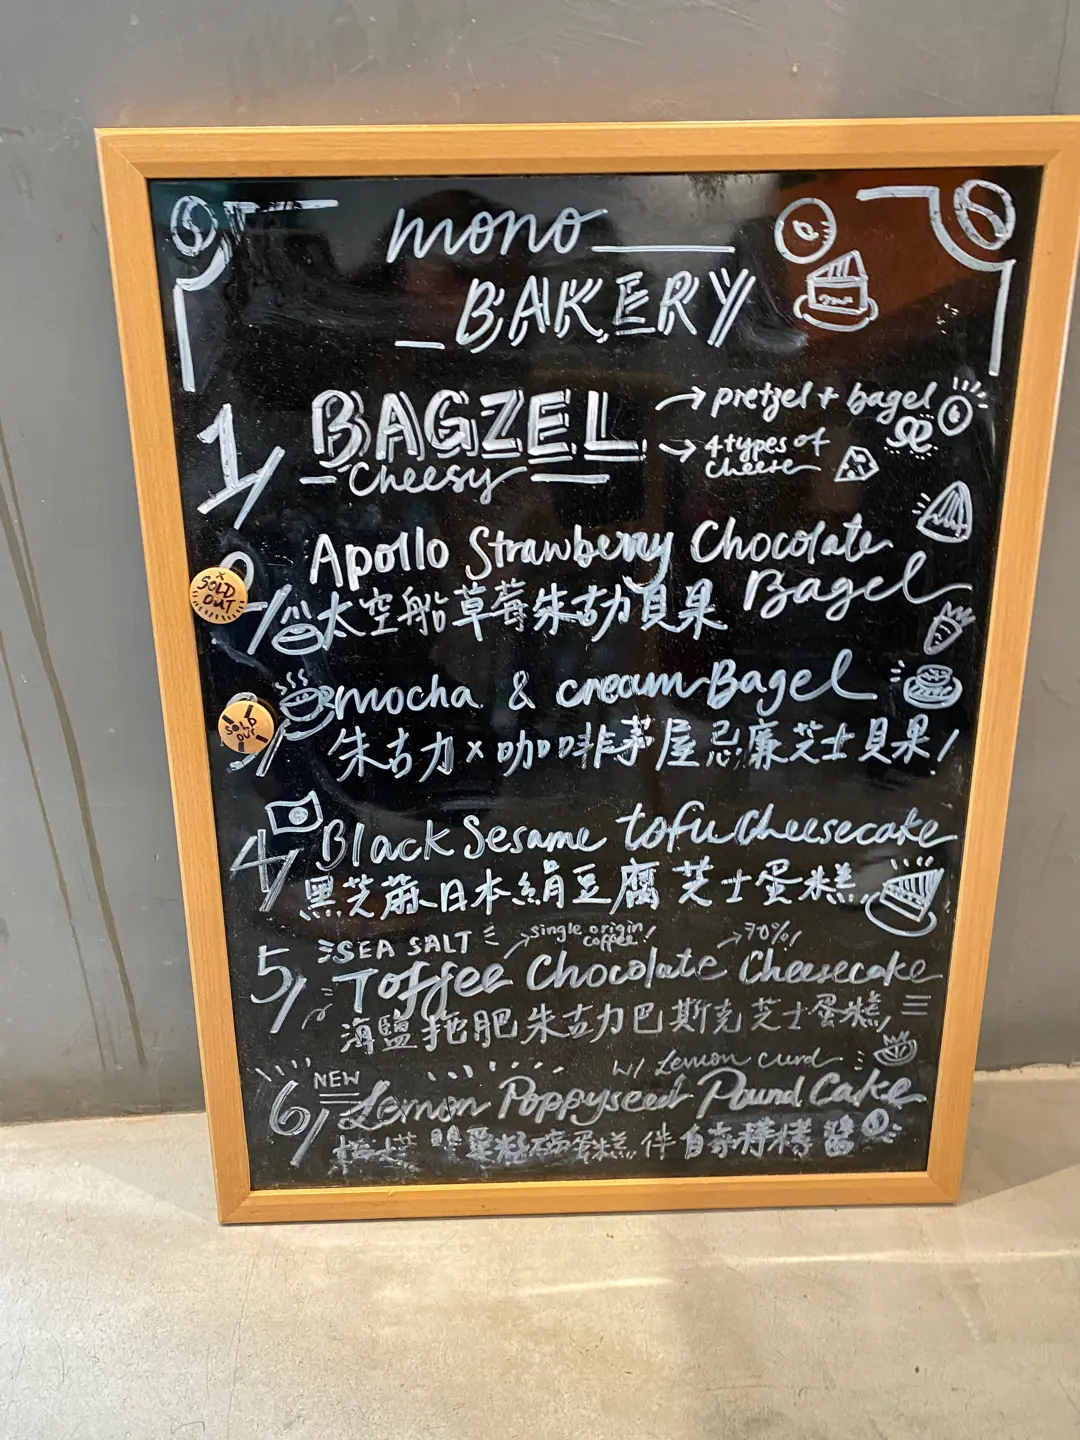 mono
BAKERY
1/ BAGZEL → pretzel + bagel
Cheesy → 4 types of cheese
Apollo Strawberry Chocolate Bagel
X SOLD OUT
太空船草莓朱古力貝果
mocha & cream Bagel
SOLD OUT
3/ 朱古力 x 咖啡茅屋忌廉芝士貝果!
4/ Black Sesame tofu Cheesecake
黑芝蔴日本絹豆腐芝士蛋糕
5/ SEA SALT → single origin coffee! → 70%!
Toffee Chocolate Cheesecake
海鹽拖肥朱古力巴斯克芝士蛋糕
NEW w/ Lemon curd
6/ Lemon Poppyseed Pound Cake
檸檬 蛋糕 伴自家檸檬